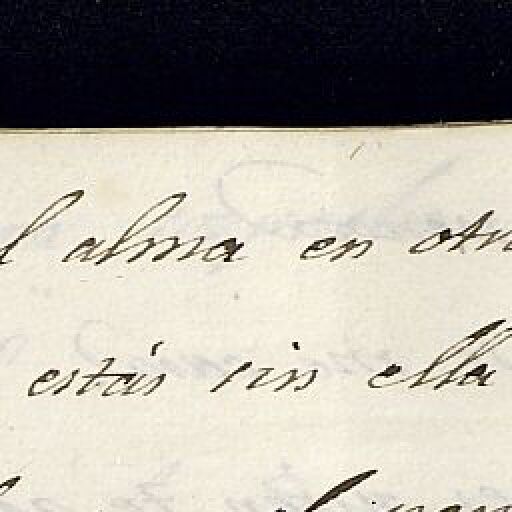 l alma en otr
estás sin ella